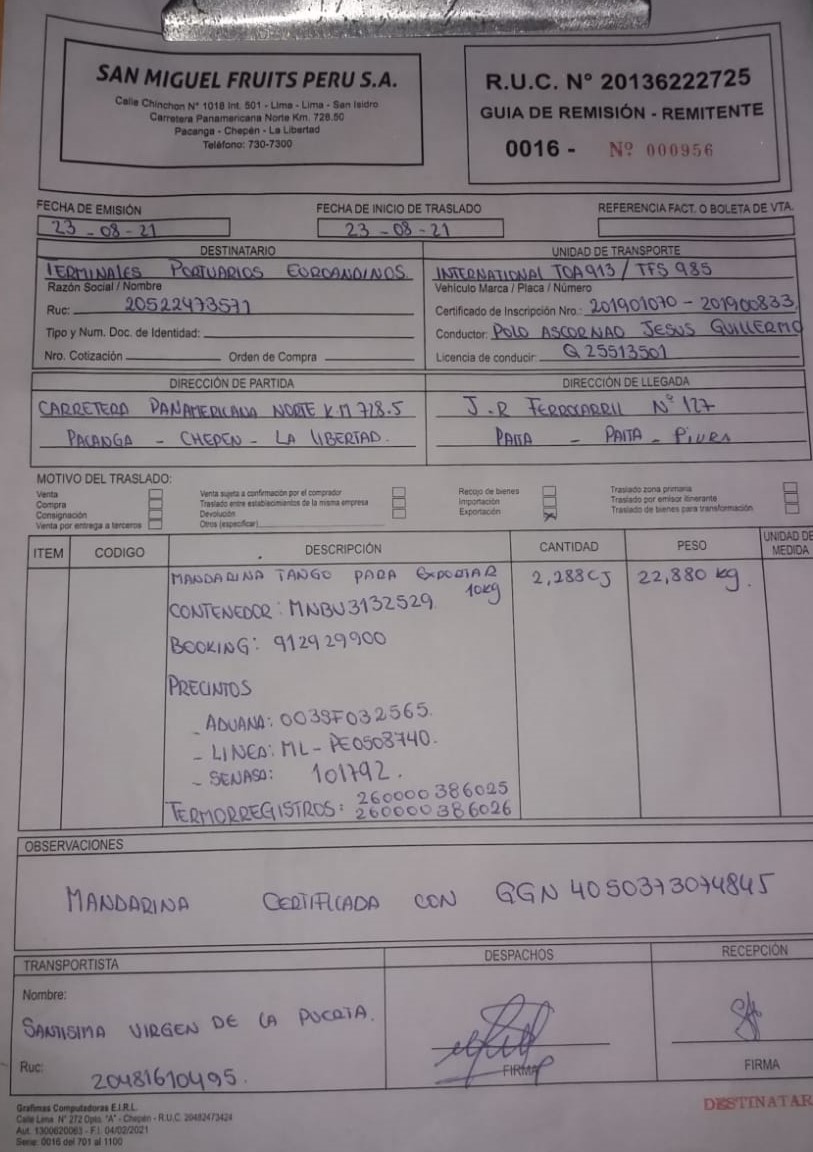 SAN MIGUEL FRUITS PERU S.A.
Calle Chinchon N° 1018 Int. 501 - Lima - Lima - San Isidro
Carretera Panamericana Norte Km. 728.50
Pacanga - Chepén - La Libertad
Teléfono: 730-7300
R.U.C. N° 20136222725
GUIA DE REMISIÓN - REMITENTE
0016 - Nº 000956
FECHA DE EMISIÓN
23-08-21
FECHA DE INICIO DE TRASLADO
23-08-21
REFERENCIA FACT. O BOLETA DE VTA.
DESTINATARIO
TERMINALES PORTUARIOS EUROANDINOS.
Razón Social / Nombre
Ruc: 20522473571
Tipo y Num. Doc. de Identidad:
Nro. Cotización Orden de Compra
UNIDAD DE TRANSPORTE
INTERNATIONAL TOA913 / TFS 985
Vehículo Marca / Placa / Número
Certificado de Inscripción Nro.: 201901070 - 201900833
Conductor: POLO ASCORNAO JESUS GUILLERMO
Licencia de conducir: Q25513501
DIRECCIÓN DE PARTIDA
CARRETERA PANAMERICANA NORTE KM 728.5
PACANGA - CHEPEN - LA LIBERTAD.
DIRECCIÓN DE LLEGADA
J.R FERROCARRIL Nº 127
PAITA - PAITA - PIURA
MOTIVO DEL TRASLADO:
Venta
Compra
Consignación
Venta por entrega a terceros
Venta sujeta a confirmación por el comprador
Traslado entre establecimientos de la misma empresa
Devolución
Otros (especificar)
Recojo de bienes
Importación
Exportación X
Traslado zona primaria
Traslado por emisor itinerante
Traslado de bienes para transformación
ITEM CODIGO DESCRIPCIÓN CANTIDAD PESO UNIDAD DE MEDIDA
MANDARINA TANGO PARA EXPORTAR 2,288CJ 22,880 kg.
10kg
CONTENEDOR: MNBU3132529
BOOKING: 912929900
PRECINTOS
- ADUANA: 0039F032565.
- LINEA: ML-PE0508740.
- SENASA: 101792.
TERMORREGISTROS: 260000386025
260000386026
OBSERVACIONES
MANDARINA CERTIFICADA CON GGN 4050373074845
TRANSPORTISTA
Nombre:
SANTISIMA VIRGEN DE LA PUERTA.
Ruc: 20481610495.
DESPACHOS
FIRMA
RECEPCIÓN
FIRMA
Grafimas Computadoras E.I.R.L.
Calle Lima N° 272 Dpto. "A" - Chepén - R.U.C. 20482473424
Aut. 1300620063 - F.I. 04/02/2021
Serie: 0016 del 701 al 1100
DESTINATAR